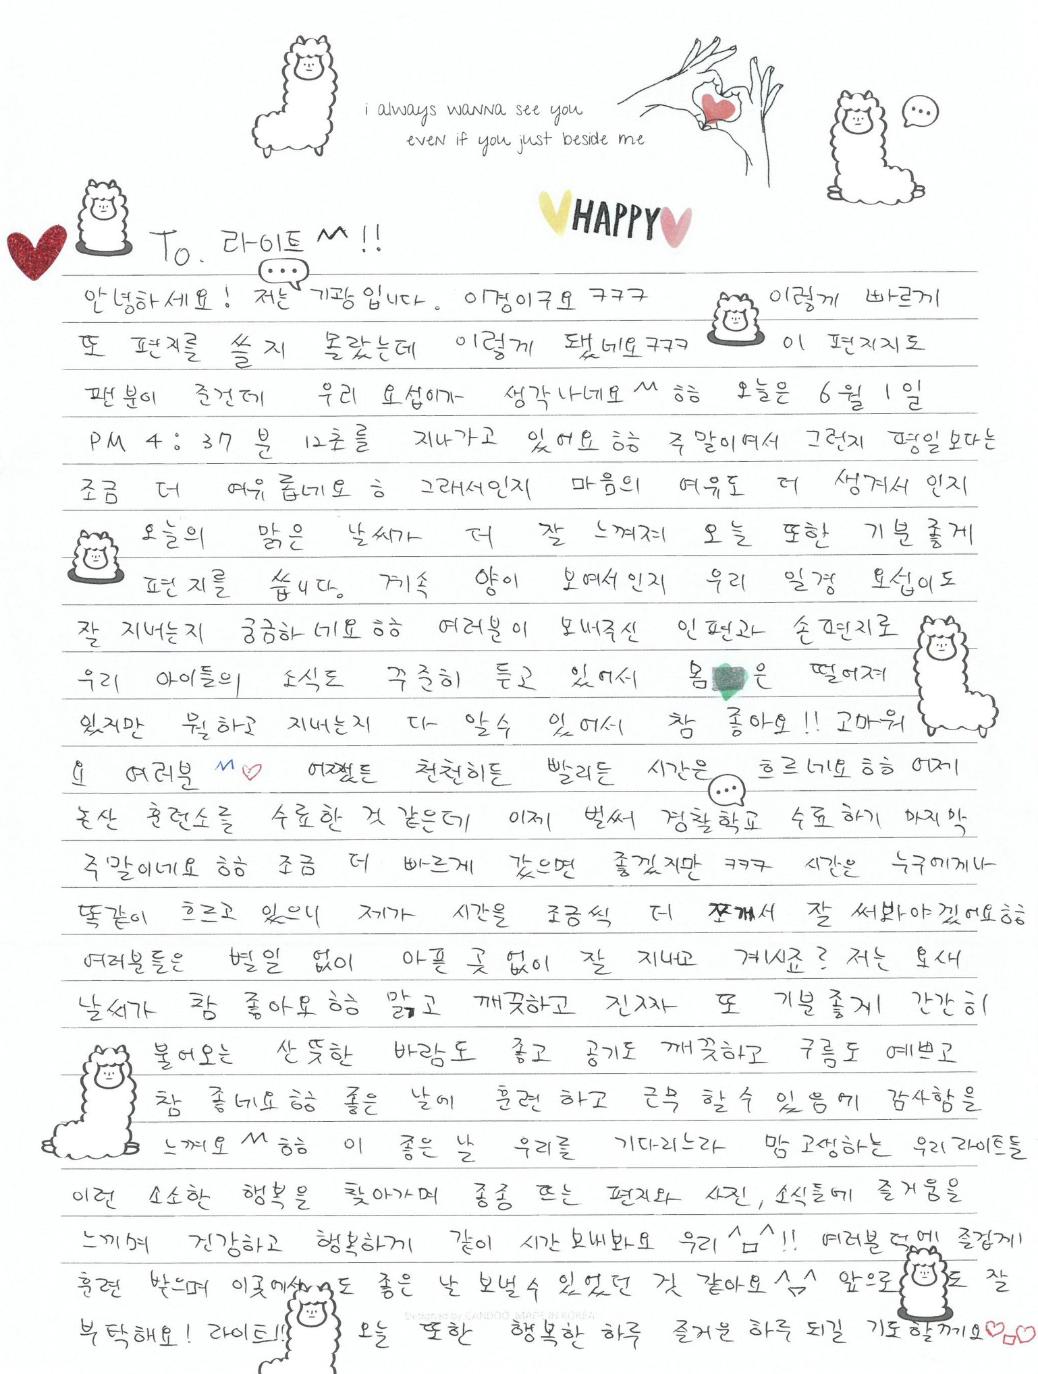 i always wanna see you
even if you just beside me
HAPPY
To. 라이트 ^^ !!
안녕하세요! 저는 기광입니다. 이경이구요 ㅋㅋㅋ 이렇게 빠르게
또 편지를 쓸지 몰랐는데 이렇게 됐네요 ㅋㅋㅋ 이 편지지도
팬분이 준건데 우리 요섭이가 생각나네요 ^^ ㅎㅎ 오늘은 6월 1일
PM 4:37분 12초를 지나가고 있어요 ㅎㅎ 주말이여서 그런지 평일보다는
조금 더 여유롭네요 ㅎ 그래서인지 마음의 여유도 더 생겨서 인지
오늘의 맑은 날씨가 더 잘 느껴져 오늘 또한 기분 좋게
편지를 씁니다. 계속 양이 보여서인지 우리 일경 요섭이도
잘 지내는지 궁금하네요 ㅎㅎ 여러분이 보내주신 인편과 손편지로
우리 아이들의 소식도 꾸준히 듣고 있어서 몸은 떨어져
있지만 뭘하고 지내는지 다 알수 있어서 참 좋아요!! 고마워
요 여러분 ^^♡ 어쨌든 천천히든 빨리든 시간은 흐르네요 ㅎㅎ 어제
논산 훈련소를 수료한 것 같은데 이제 벌써 경찰학교 수료하기 마지막
주말이네요 ㅎㅎ 조금 더 빠르게 갔으면 좋겠지만 ㅋㅋㅋ 시간은 누구에게나
똑같이 흐르고 있으니 제가 시간을 조금씩 더 쪼개서 잘 써봐야겠어요 ㅎㅎ
여러분들은 별일 없이 아픈 곳 없이 잘 지내고 계시죠? 저는 요새
날씨가 참 좋아요 ㅎㅎ 맑고 깨끗하고 진짜 또 기분좋게 간간히
불어오는 산뜻한 바람도 좋고 공기도 깨끗하고 구름도 예쁘고
참 좋네요 ㅎㅎ 좋은 날에 훈련하고 근무 할 수 있음에 감사함을
느껴요 ^^ ㅎㅎ 이 좋은 날 우리를 기다리느라 맘고생하는 우리 라이트들
이런 소소한 행복을 찾아가며 종종 뜨는 편지와 사진, 소식들에 즐거움을
느끼며 건강하고 행복하게 같이 시간 보내봐요 우리 ^ㅁ^!! 여러분 덕에 즐겁게
훈련 받으며 이곳에서도 좋은 날 보낼 수 있었던 것 같아요 ^ㅁ^ 앞으로도 잘
부탁해요! 라이트!! 오늘 또한 행복한 하루 즐거운 하루 되길 기도할께요 ♡ㅁ♡